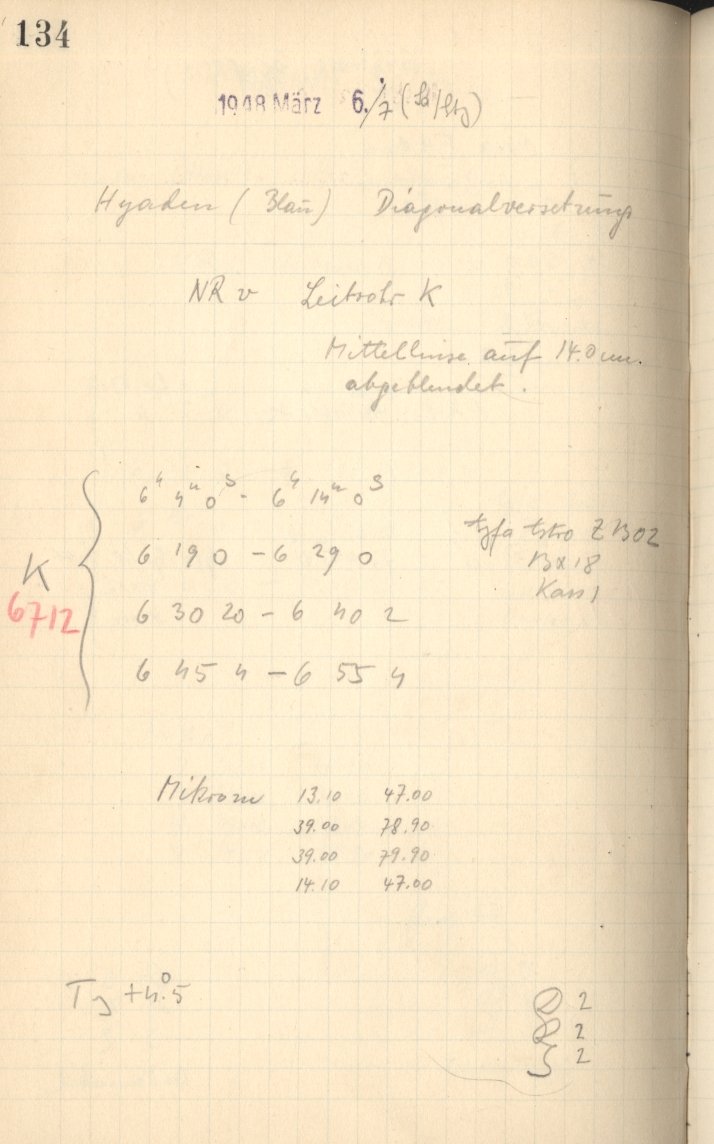 134
1948 März 6./7
Hyaden (Blau) Diagonalversetzung
NR v Leitrohr K
Mittellinse auf 14.0 cm.
abgeblendet.
6ʰ 4ᵐ 0ˢ - 6ʰ 14ᵐ 0ˢ
6 19 0 - 6 29 0
6 30 20 - 6 40 2
6 45 4 - 6 55 4
K
6712
Agfa Astro Z B02
Bx 18
Kass 1
Mikrom 13.10 47.00
39.00 78.90
39.00 79.90
14.10 47.00
+4°.5
2
2
2